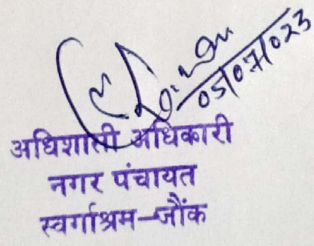 05/07/023
अधिशासी अधिकारी
नगर पंचायत
स्वर्गाश्रम–जौंक